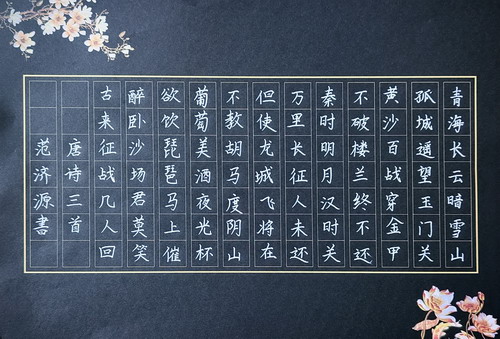 青海长云暗雪山
孤城遥望玉门关
黄沙百战穿金甲
不破楼兰终不还
秦时明月汉时关
万里长征人未还
但使龙城飞将在
不教胡马度阴山
葡萄美酒夜光杯
欲饮琵琶马上催
醉卧沙场君莫笑
古来征战几人回
唐诗三首
范济源書